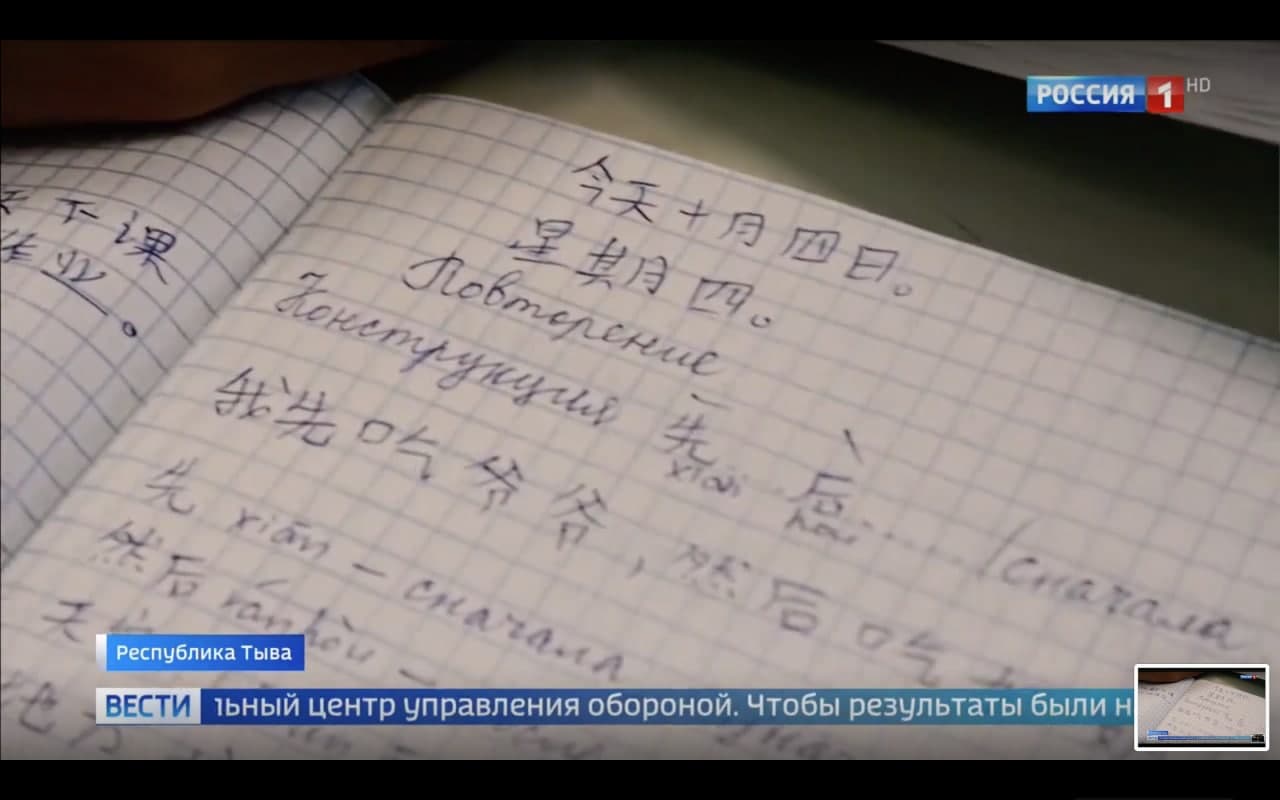 РОССИЯ 1 HD
下课
作业。
今天十月四日。
星期四。
Повторение
Конструкция 先 xiān ... 后 hòu ..... (сначала
我先吃爷爷，然后吃
先 xiān – сначала
然后 ránhòu –
Республика Тыва
ВЕСТИ ьный центр управления обороной. Чтобы результаты были н